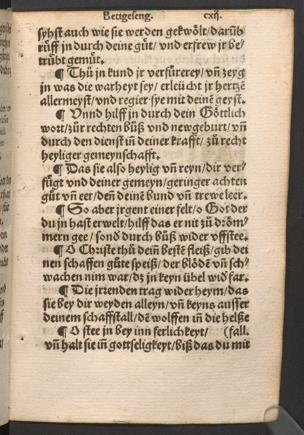 Bettgeseng. cxij.
syhst auch wie sie werden gekwölt/ darūb
rüff in durch deine güt/ vnd erfrew jr be⸗
trübt gemüt.
¶ Thů in kund jr verfürerey/ vn̄ zeyg
in was die warheyt sey/ erleücht jr hertzē
allermeyst/ vnd regier sye mit deinē geyst.
¶ Vnnd hilff in durch dein Göttlich
wort/ zůr rechten bůß vnd newgeburt/ vn̄
durch den dienst in̄ deiner krafft/ zů recht
heyliger gemeynschafft.
¶ Das sie also heylig vn̄ reyn/ dir ver⸗
fügt vnd deiner gemeyn/ geringer achten
gůt vn̄ eer/ den̄ deinē bund vn̄ trewe leer.
¶ So aber jrgent einer felt/ o Got der
du jn hast erwelt/ hilff das er nit zů drōm⸗
mern gee/ sonđ durch bůß wider vffstee.
¶ O Christe thů dein̄ bestē fleiß/ gib dei
nen schaffen gůte speiß/ der blödē vn̄ sch⸗
wachen nim war/ dz jn keyn übel widfar.
¶ Die jrrenden trag wider heym/ das
sie bey dir weyden alleyn/ vn̄ keyns ausser
deinem schaffstall/ dē wolffen in̄ die helße
¶ O stee jn bey inn ferlichkeyt/ (fall.
vn̄ halt sie in̄ gottseligkeyt/ biß das du mit